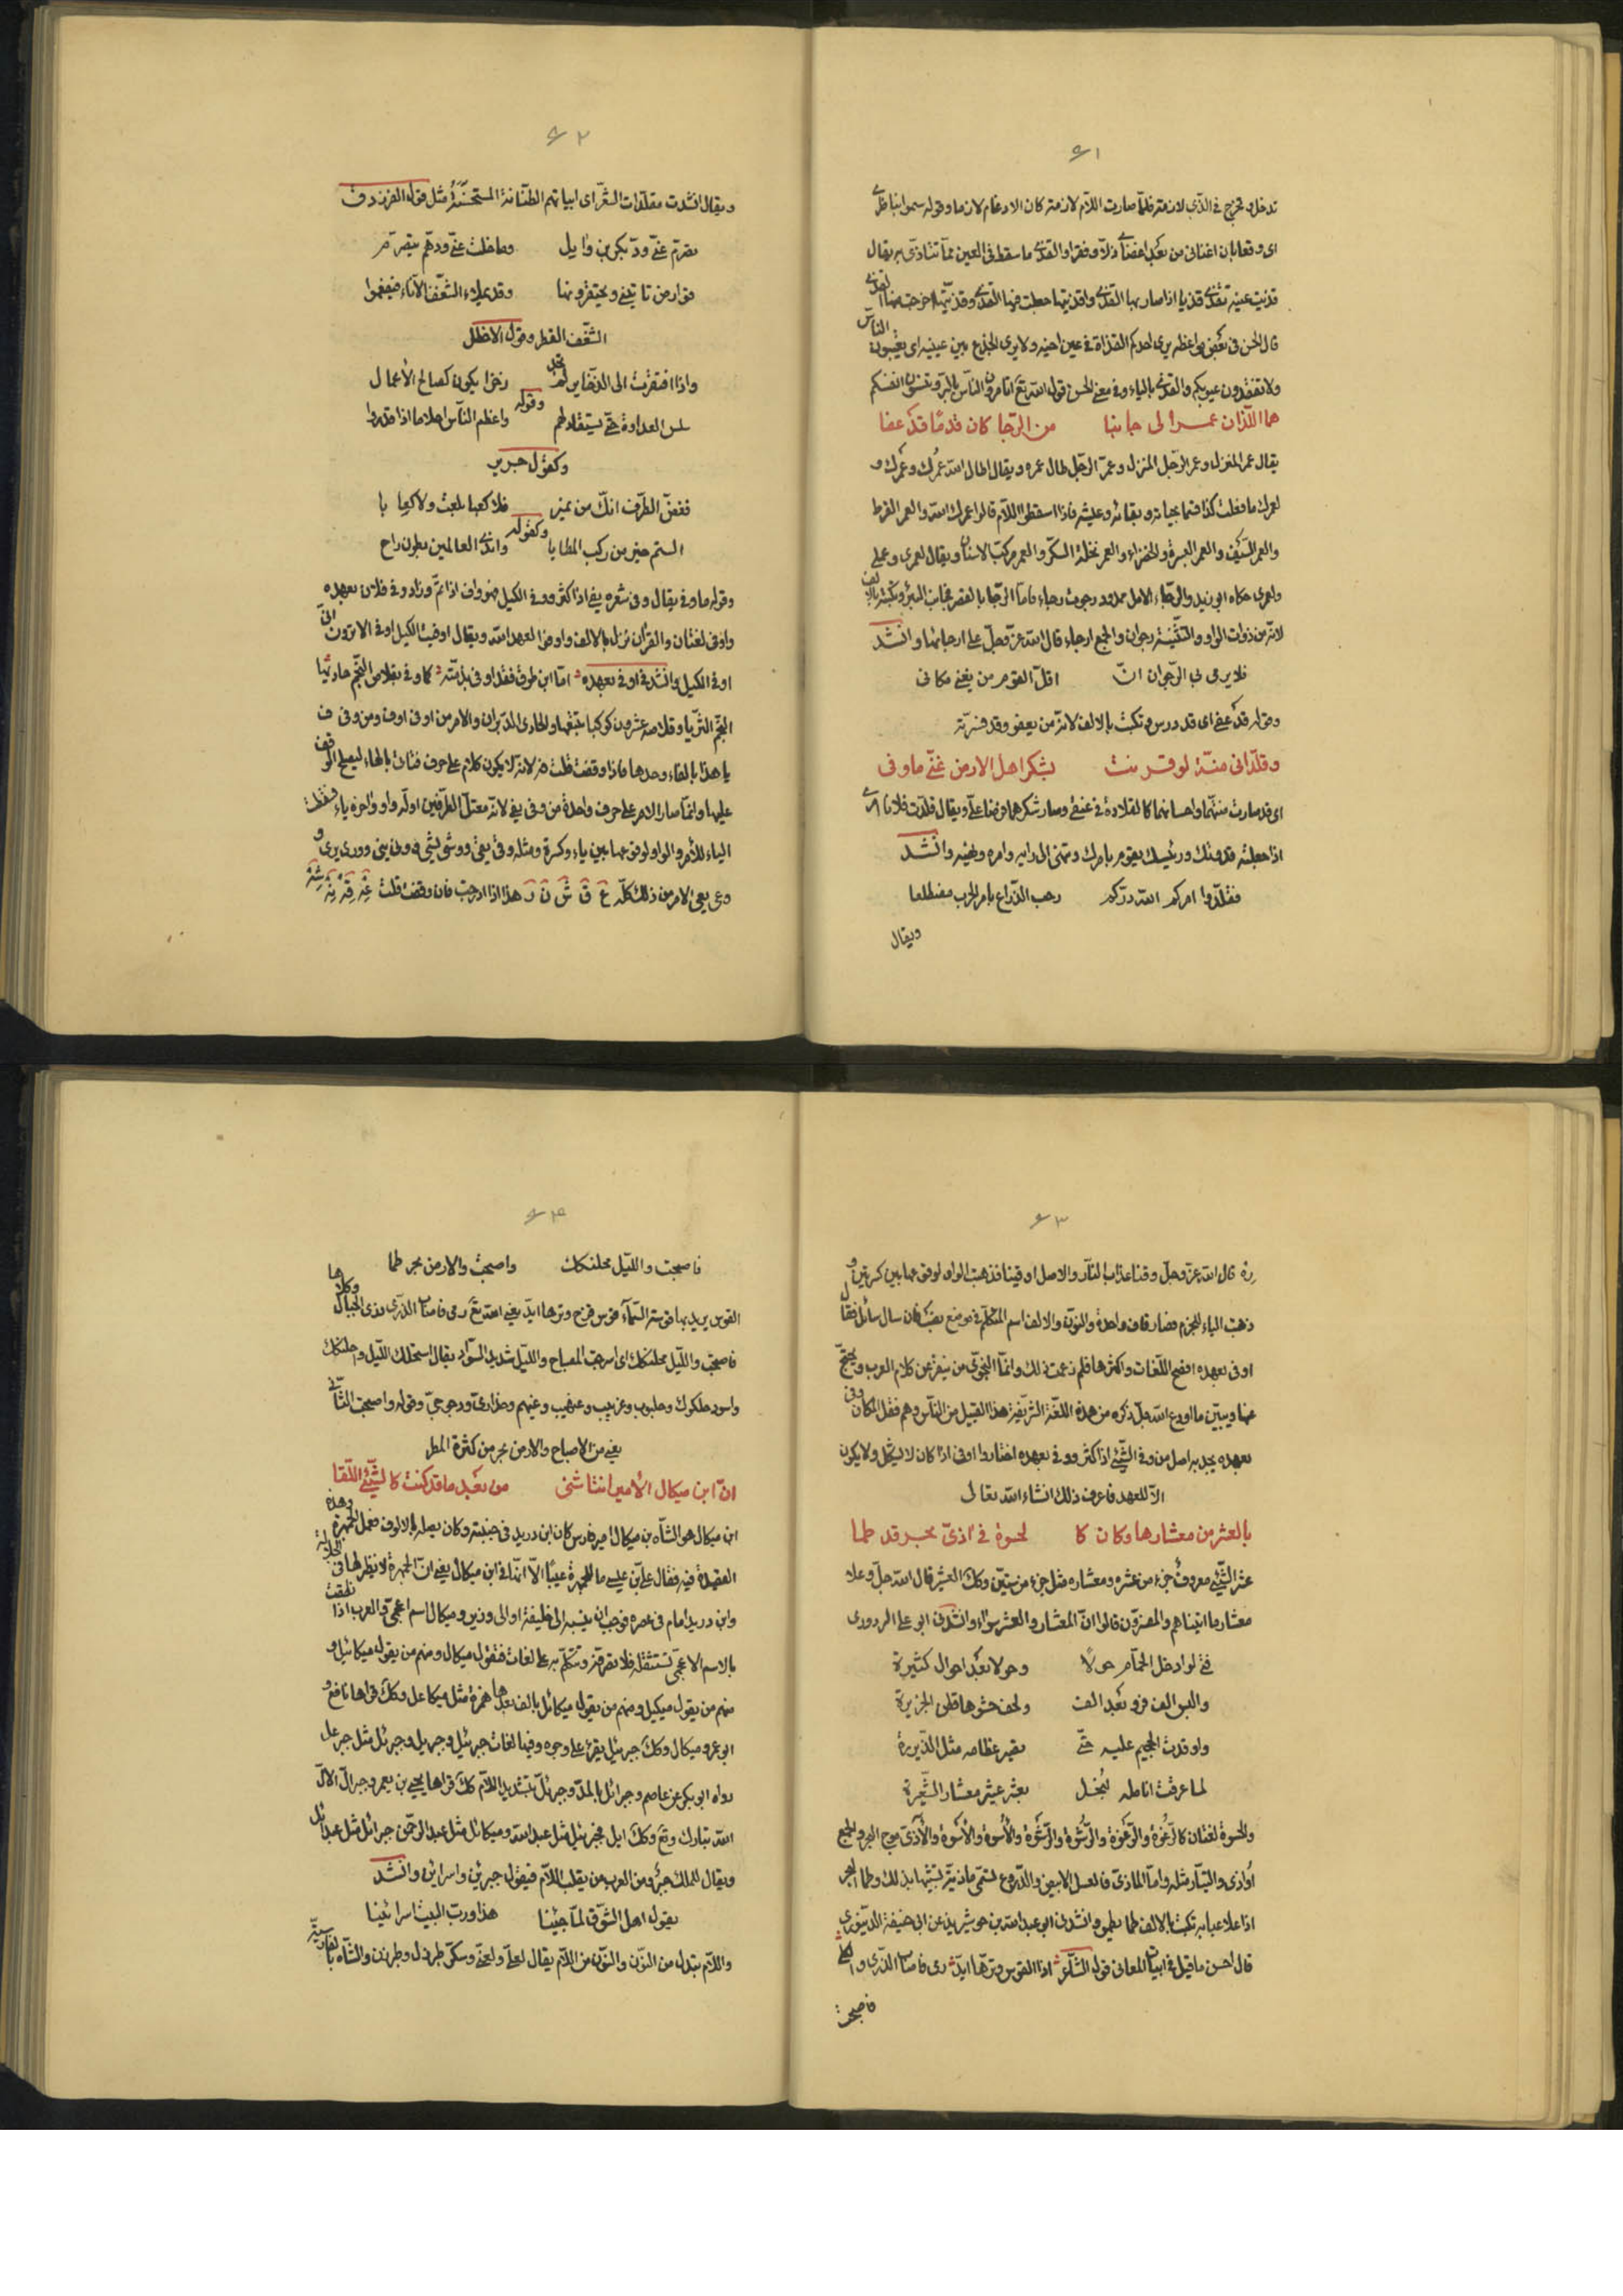 ٦١
تدخل وتخرج فى الذى لازمة فلما صارت اللام لازمة كان الادغام لازما وقوله سموا بناظرى
اى وقعا بان اغتنانى من بعد اغضاى ذلا وفقرا والقذى ما سقط فى العين مما تتاذى به يقال
قذيت عينه تقذى قذيا اذا صار بها القذى واقذيتها جعلت فيها القذى وقذيتها اخرجت منها القذى
قال الحسن فى بعض مواعظه يرى احدكم القذاة فى عين اخيه ولا يرى الجذع بين عينيه اى يعيبون الناس
ولا تفقدون عيوبكم والقذى بالياء وفى معنى الحسن قول الله تع اتامرون الناس بالبر وتنسون انفسكم
هما اللذان عمرا لى جانبا من الرجا كان قدما قد عفا
يقال عمر المنزل وعمر الرجل المنزل وعمر الرجل طال عمره ويقال اطال الله عمرك وعمرك و
لعمرك ما فعلت كذا قسما بحياته وبقائه وعيشه فاذا اسقطوا اللام قالوا عمرك الله والعمر القرط
والعمر السيف والعمر العسرة والخضراء والعمر نخلة السكر والعمر مركب الاسنان ويقال لعمرى وعملى
ولعمرى حكاه ابو زيد والرجاء الامل ممدود رجوت رجاء فاما الرجا بالقصر فجانب البئر وتكتبه بالالف
لانه من ذوات الواو والتثنية رجوان والجمع ارجاء قال الله عز وجل على ارجائها وانشد
فلا يرمى بى الرجوان انى اقل القوم من يغنى مكانى
وقوله قد عفى اى قد درس وتكتب بالالف لانه من يعفو وقد فسرته
وقلدانى منة لو قرنت بشكر اهل الارض عنى ما وفى
اى قد صارت منتهما واحسانهما كالقلادة فى عنقى وصار شكرهما فرضا على ويقال قلدت فلانا امرى
اذا جعلته قدوتك ورئيسك يقوم بامرك وتنتهى الى رايه وامره ونهيه وانشد
فقلدوا امركم لله دركم رحب الذراع بامر الحرب مضطلعا
ويقال
٦٢
ويقال انشدت مقلدات الشعر اى ابياتهم الطنانة المستحسنة مثل قول الفرزدق
تصرم عنى ود بكر بن وايل وما خلت عنى ودهم يتصرم
قوارص تاتينى ويحتقرونها وقد يملاء الشغف الاناء فيفعم
الشغف القطر وقول الاخطل
واذا افتقرت الى الذخاير لم تجد ذخرا يكون كصالح الأعمال
وقوله
شمس العداوة حتى يستقاد لهم واعظم الناس احلاما اذا قدروا
وكقول جرير
فغض الطرف انك من نمير فلا كعبا بلغت ولا كلابا
وكقوله
الستم خير من ركب المطايا واندى العالمين بطون راح
وقوله ما وفى يقال وفى شعره يفى اذا كثر ووفى الكيل فهو واف اذا تم وزاد وفى فلان بعهده
واوفى لغتان والقران نزل بالالف واوفوا بعهد الله ويقال اوفيت الكيل اوفى الا ترون انى
اوفى الكيل وانشد فى اوفى بعهده اما ابن طوق فقد اوفى بذمته كما وفى بقلاص النجم حاديها
النجم الثريا وقلاصه عشرون كوكبا تتبعها والحادى الدبران والامر من اوفى اوف ومن وفى ف
يا هذا بالفاء وحدها فاذا وقفت قلت فه لانه لا يكون كلام على حرف فتات بالهاء ليصلح الوقف
عليها وانما صار الامر على حرف واحدة من وفى يفى لانه معتل الطرفين اوله واو واخره ياء فسقطت
الياء للامر والواو لوقوعها بين ياء وكسرة ومثله وقى يقى ووشى يشى وونى ينى وورى يرى و
وعى يعى الامر من ذلك كله ع ق ش ن ر هذا اذا ادرجت فان وقفت قلت عه قه نه شه
٦٣
ره قال الله عز وجل وقنا عذاب النار والاصل اوقينا فذهبت الواو لوقوعها بين كسرتين و
ذهبت الياء للجزم فصار قاف واحدة والنون والالف اسم المتكلم فى موضع نصب فان سال سائل فقال
اوفى بعهده افصح اللغات واكثرها فلم زعمت ذلك وانما النحوى من ينقر عن كلام العرب ويحتج
عنها ويبين ما اودع الله جل ذكره من هذه اللغة الشريفة هذا القبيل من الناس وهم فقل لمكان وفى
بعهده يجذبه اصل من وفى الشيئ اذا كثر ووفى بعهده اختاروا اوفى اذا كان لا يشكل ولا يكون
الا للعهد فاعرف ذلك انشاء الله تعالى
بالعشر من معشارها وكان كا لحسوة فى آذى بحر قد طما
عشر الشيئ معروف جزء من عشره ومعشاره مثل جزء من ستين وكذلك العشير قال الله جل وعلا
معشار ما اتيناهم والمفسرون قالوا ان المعشار والعشر سواء وانشدنى ابو على الردورى
فتى لو ادخل الحمام حولا وحولا بعد احوال كثيرة
والبس الف فرو بعد الف ولحف حشوها قطن الجزيرة
واوقدت الجحيم عليه حتى تصير عظامه مثل الذريرة
لما عرقت انامله ببخل بعشر عشير معشار الشعيرة
والحسوة لغتان كالرغوة والرغوة والرشوة والرشوة والاسوة والاسوة والآذى موج البحر والجمع
أواذى والتيار مثله واما الماذى فالعسل الابيض والدروع تسمى ماذية تشبيها بذلك وطما البحر
اذا علا عبابه تكتب بالالف طما يطمو وانشدنى ابو عبد الله بن خوشيزيذ عن ابى حنيفة الدينورى
قال احسن ما قيل فى ابيات المعانى قول الشاعر اذا القوس وترها ايد رمى فاصاب الذرى و الكلى
فاصبحت
٦٤
فاصبحت والليل محلنكك واصبحت والارض بحر طما
القوس يريد بها قوس السماء قوس قزح وترها ايد يعنى الله تع رمى فاصاب الذرى ذرى الجبال وكلاها
فاصبحت والليل محلنكك اى اسرجت المصباح والليل شديد السواد يقال اسحنكك الليل واحلنكك
واسود حلكوك وحلبوب وغربيب وغيهب وغيهم وخدارى ودجوجى وقوله واصبحت الثانى
يعنى من الاصباح والارض بحر من كثرة المطر
ان ابن ميكال الأمير انتاشنى من بعد ما قد كنت كالشيئ اللقا
ابن ميكال هو الشاه بن ميكال امير فارس كان ابن دريد فى حبيبته وكان يصله بالالوف فعمل الجمهرة وهذه
القصيدة فيه فقال على بن عيسى ما للجمهرة عيبا الا انها فى ابن ميكال يعنى ان الجمهرة لا نظير لها فى الجلالة
وابن دريد امام فى عصره فوجب ان ينسبه الى خليفة او الى وزير وميكال اسم اعجمى والعرب اذا نطقت
بالاسم الاعجمى تستثقله فلا تصرفه وتتكلم به على لغات فتقول ميكال ومنهم من يقول ميكائيل و
منهم من يقول ميكيل ومنهم من يقول ميكائل بالف بعدها همزة مثل ميكاعل وكذلك قراها نافع و
ابو عمرو ميكال وكذلك جبرئيل يقرئ على وجوه وفيها لغات جبرئيل وجبريل وجبرئل مثل جبرعل
رواه ابو بكر عن عاصم وجبرائل بالمد وجبرئل بتشديد اللام كذلك قراها يحيى بن يعمر وجبرال الال
الله تبارك وتع وكذلك ايل فجبرئيل مثل عبد الله وميكائل مثل عبد الرحمن جبرائل مثل عبدائل
ويقال للملك جبر ومن العرب من يقلب اللام فيقول جبرين واسرائين وانشد
يقول اهل السوق لما جئينا هذا ورب البيت اسرائينا
واللام تبدل من النون والنون من اللام يقال لعلى ولعنى وسكر طبرزل وطبرزن والشاه بالفارسية